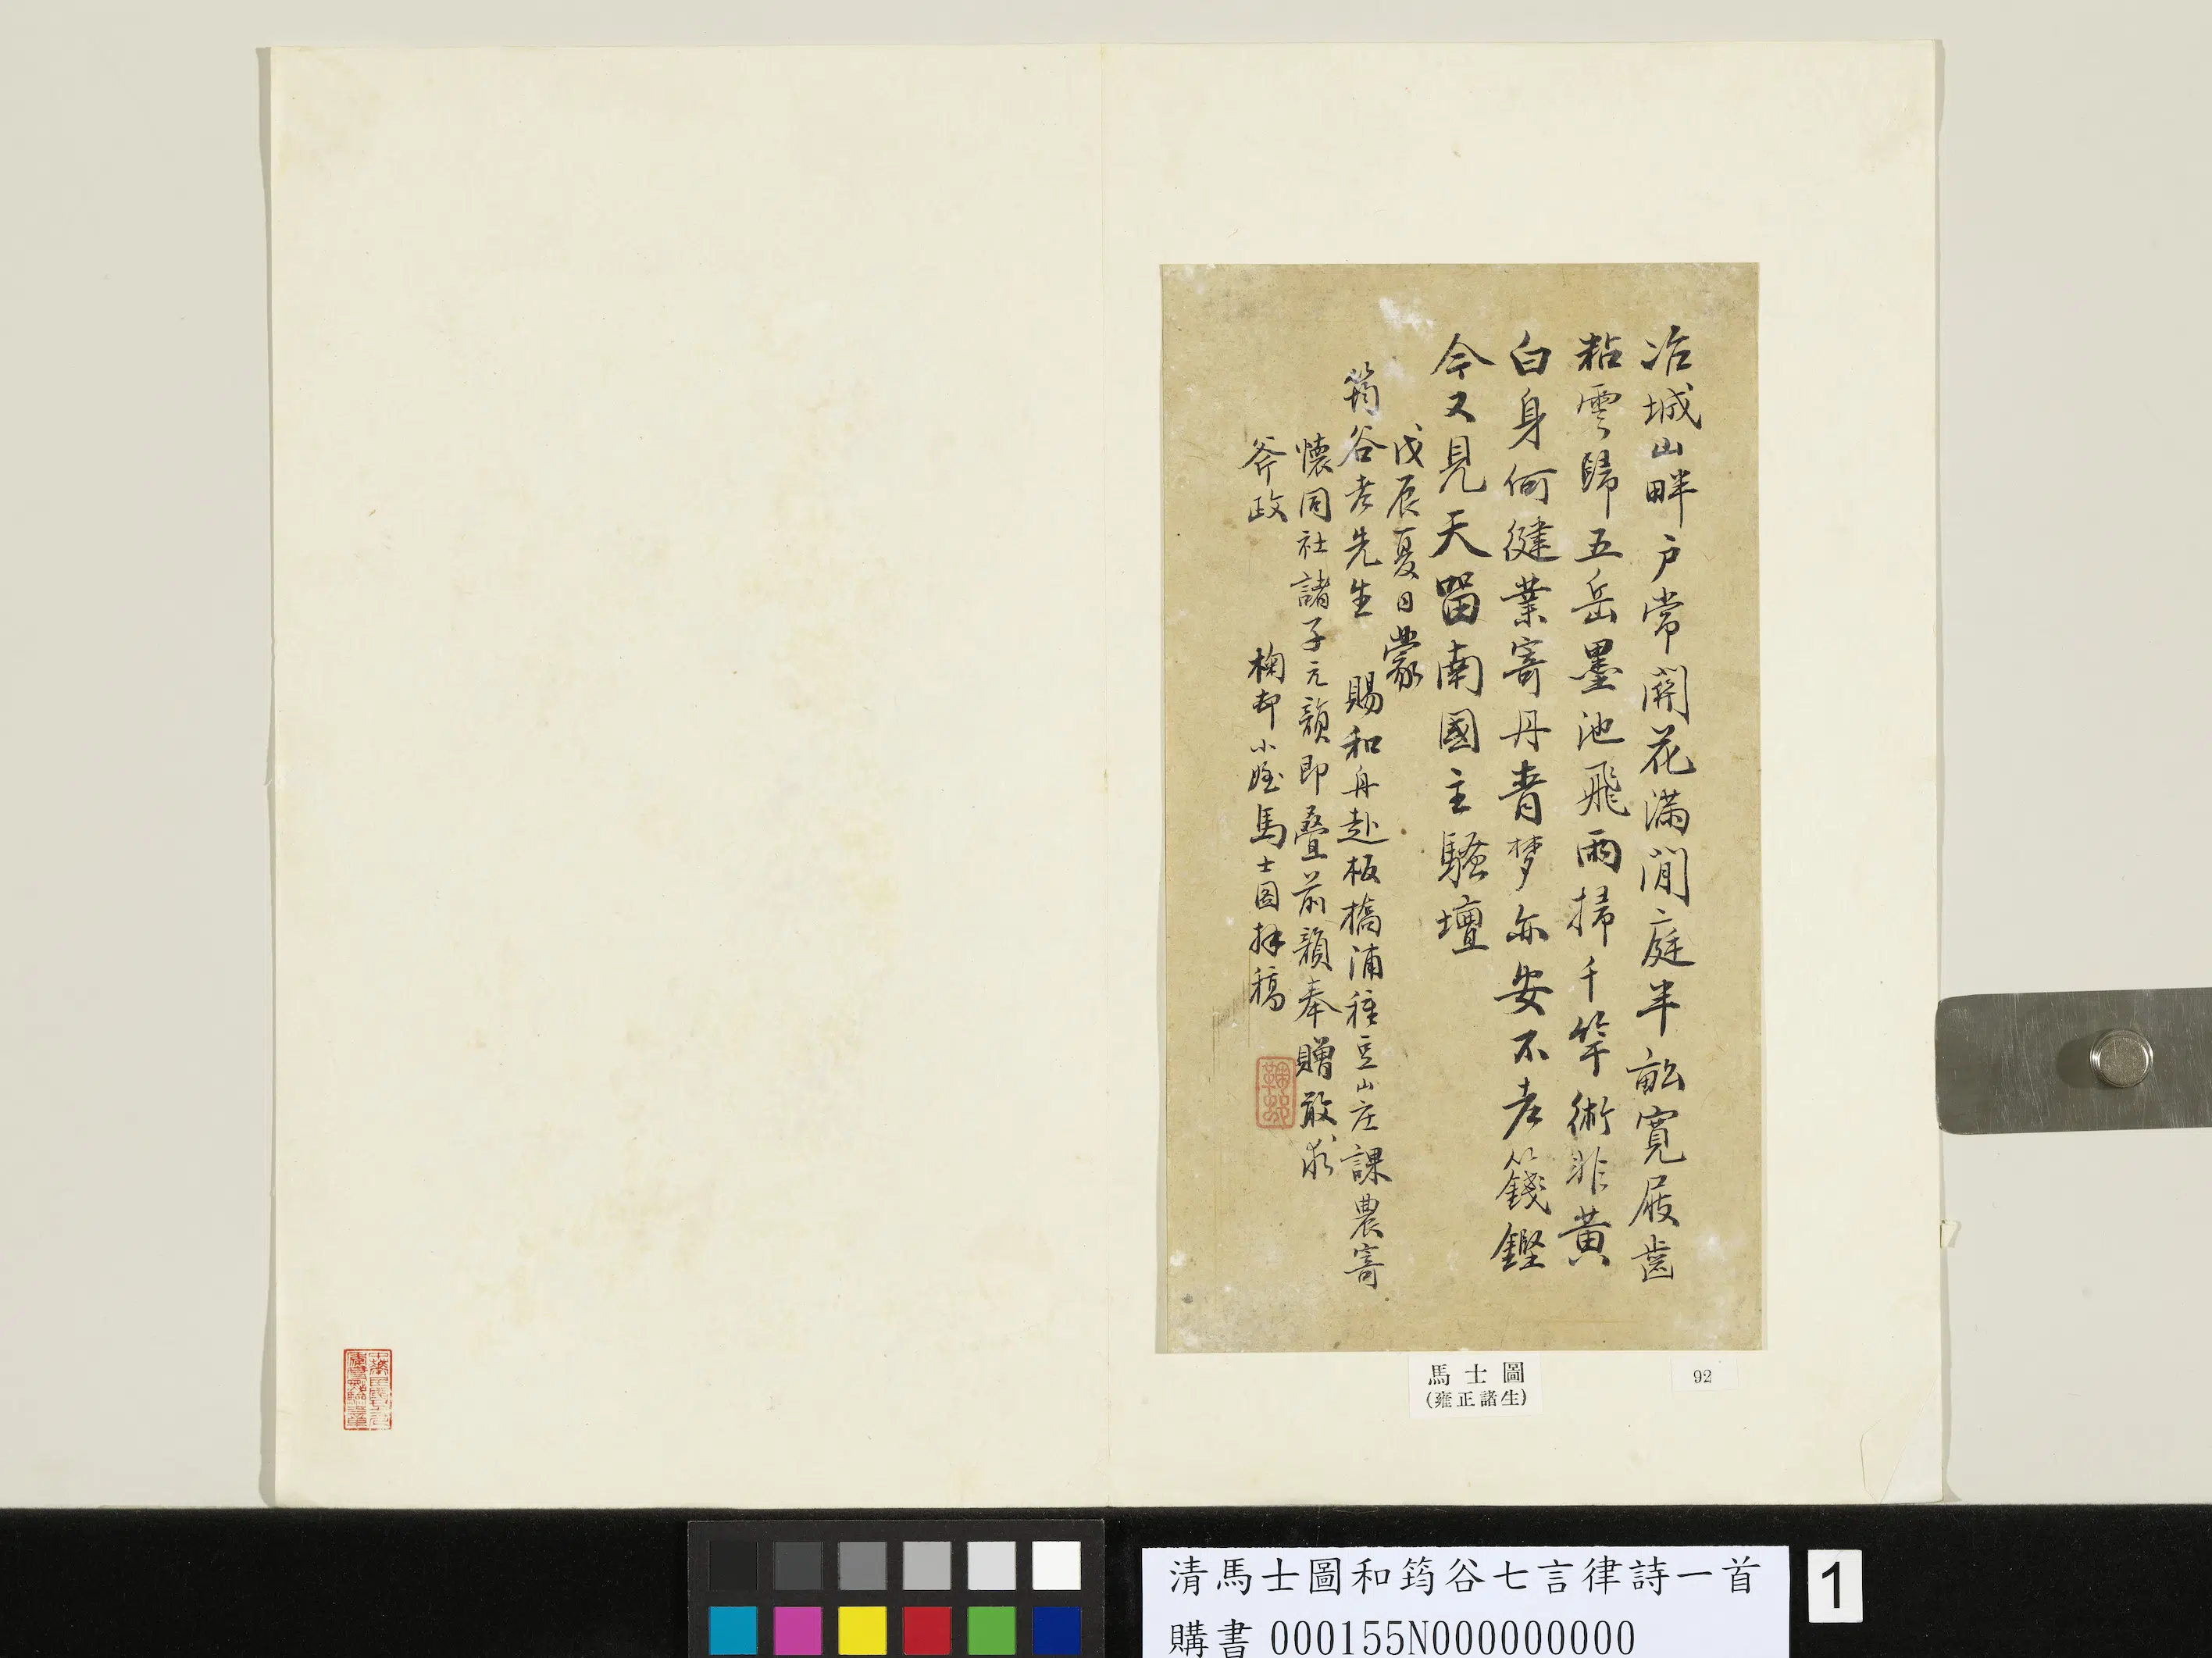 冶城山畔戶常關花滿閒庭半畝寬屐齒
粘雲歸五岳墨池飛雨掃千竿術非黃
白身何健業寄丹青梦亦安不老籛鏗
今又見天留南國主騷壇
戊辰夏日蒙
筠谷老先生 賜和舟赴板橋浦種豆山庄課農寄
懷同社諸子元韻即疊前韻奉贈敢求
斧政
小姪馬士图拜稿
馬士圖
(雍正諸生)
92
清馬士圖和筠谷七言律詩一首
購書 000155N000000000
1